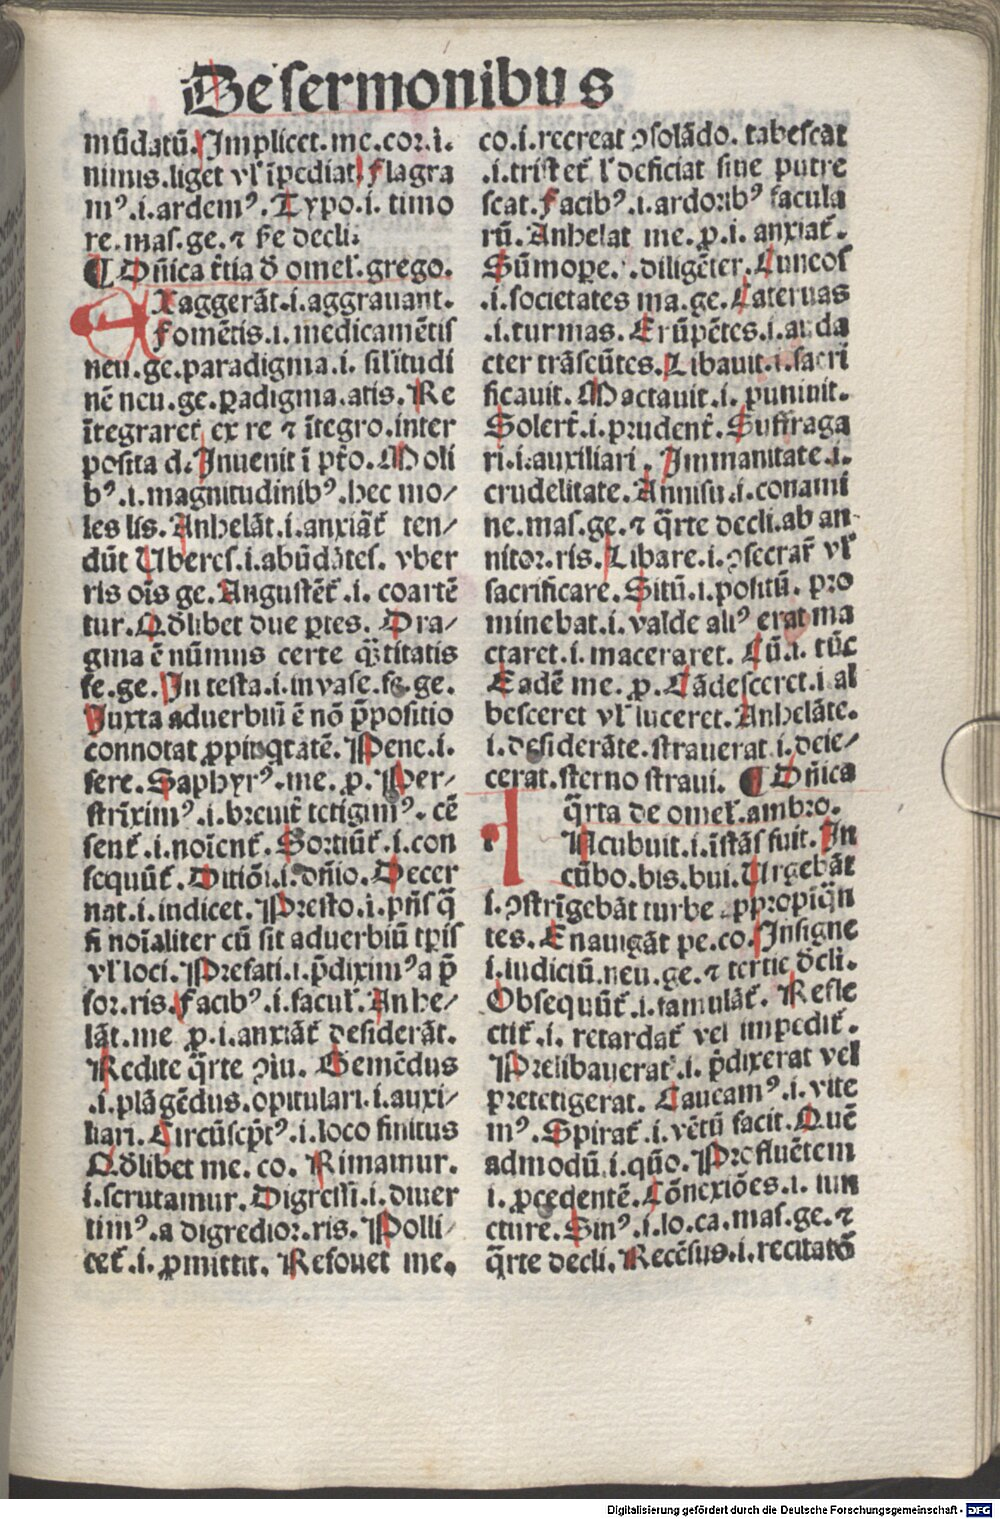 De sermonibus
mūdatū. Implicet. me. cor. i.
nimis. liget vľ īpediat. Flagra
mꝰ. i. ardemꝰ. Typo. i. timo
re. mas. ge. ⁊ ſe decli.
¶ Dn̄ica t̄tia d̄ omeľ. grego.
EXaggerāt. i. aggrauant.
Fomētis. i. medicamētis
neu. ge. paradigma. i. silītudi
nē neu. ge. ꝑadigma. atis. Re
ītegraret ex re ⁊ ītegro. inter
posita d. Inuenit ī pt̄o. Moli
bꝰ. i. magnitudinibꝰ. hec mo⸗
les lis. Anhelāt. i. anxiāt̄ ten⸗
dūt Uberes. i. abūdātes. vber
ris oīs ge. Angustēt̄. i. coartē
tur. Qd̄libet due ꝑtes. Dra⸗
gma ē nūmus certe q̄ꝫtitatis
fe. ge. In testa. i. in vase. fe. ge.
Iuxta aduerbiū ē nō p̄positio
connotat ꝓpīqtatē. Pene. i.
fere. Saphyrꝰ. me. ꝓ. Per⸗
strīximꝰ. i. breuit̄ tetigimꝰ. cē
sent̄. i. noīent̄. Sortiūt̄. i. con
sequūt̄. Ditiōi. i. dn̄io. Decer
nat. i. indicet. Presto. i. pn̄s q̄
si noīaliter cū sit aduerbiū tp̄is
vľ loci. Prefati. i. p̄diximꝰ a p̄
for. ris. Facibꝰ. i. faculľ. Anhe⸗
lāt. me ꝓ. i. anxiāt̄ desiderāt.
Redite q̄rte ꝯiu. Gemēdus
.i. plāgēdus. opitulari. i. auxi⸗
liari. Circūscp̄tꝰ. i. loco finitus
Qd̄libet me. co. Rimamur.
i. scrutamur. Digressi. i. diuer
timꝰ. a digredior. ris. Polli⸗
cet̄. i. ꝓmittit. Refouet me.
co. i. recreat ꝯsolādo. tabescat
.i. tristet̄ ľ deficiat siue putre
scat. Facibꝰ. i. ardoribꝰ facula
rū. Anhelat me. ꝓ. i. anxiat̄.
Sūmope. i. diligēter. Cuneos
.i. societates ma. ge. Cateruas
.i. turmas. Erūpētes. i. auda
cter trāseūtes. Libauit. i. sacri
ficauit. Mactauit. i. puniuit.
Solert̄. i. prudent̄. Suffraga
ri. i. auxiliari. Immanitate. i.
crudelitate. Annisu. i. conami
ne. mas. ge. ⁊ q̄rte decli. ab an
nitor. ris. Libare. i. ꝯsecrar̄ vľ
sacrificare. Sitū. i. positū. pro
minebat. i. valde altꝰ erat ma
ctaret. i. maceraret. Cū. i. tūc
Eadē me. ꝓ. Cādesceret. i. al
besceret vľ luceret. Anhelāte.
i. desiderāte. strauerat. i. deie⸗
cerat. sterno straui. ¶ Dn̄ica
q̄rta de omeľ. ambro.
INcubuit. i. īstās fuit. In
cūbo. bis. bui. Urgebāt
i. ꝯstrīgebāt turbe appropīq̄n
tes. Enauigāt pe. co. Insigne
i. iudiciū. neu. ge. ⁊ tertie d̄cli.
Obsequūt̄. i. famulāt̄. Refle
ctit̄. i. retardat̄ vel impedit̄.
Prelibauerat. i. p̄dixerat vel
pretetigerat. Caueamꝰ. i. vite
mꝰ. Spirat̄. i. vētū facit. Quē
admodū. i. quō. Profluētem
i. ꝓcedentē. Cōnexiōes. i. iun
cture. Sinꝰ. i. lo. ca. mas. ge. ⁊
q̄rte decli. Recēsus. i. recitatō
Digitalisierung gefördert durch die Deutsche Forschungsgemeinschaft - DFG